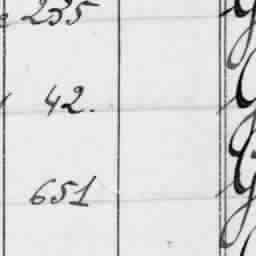 235
42.
651